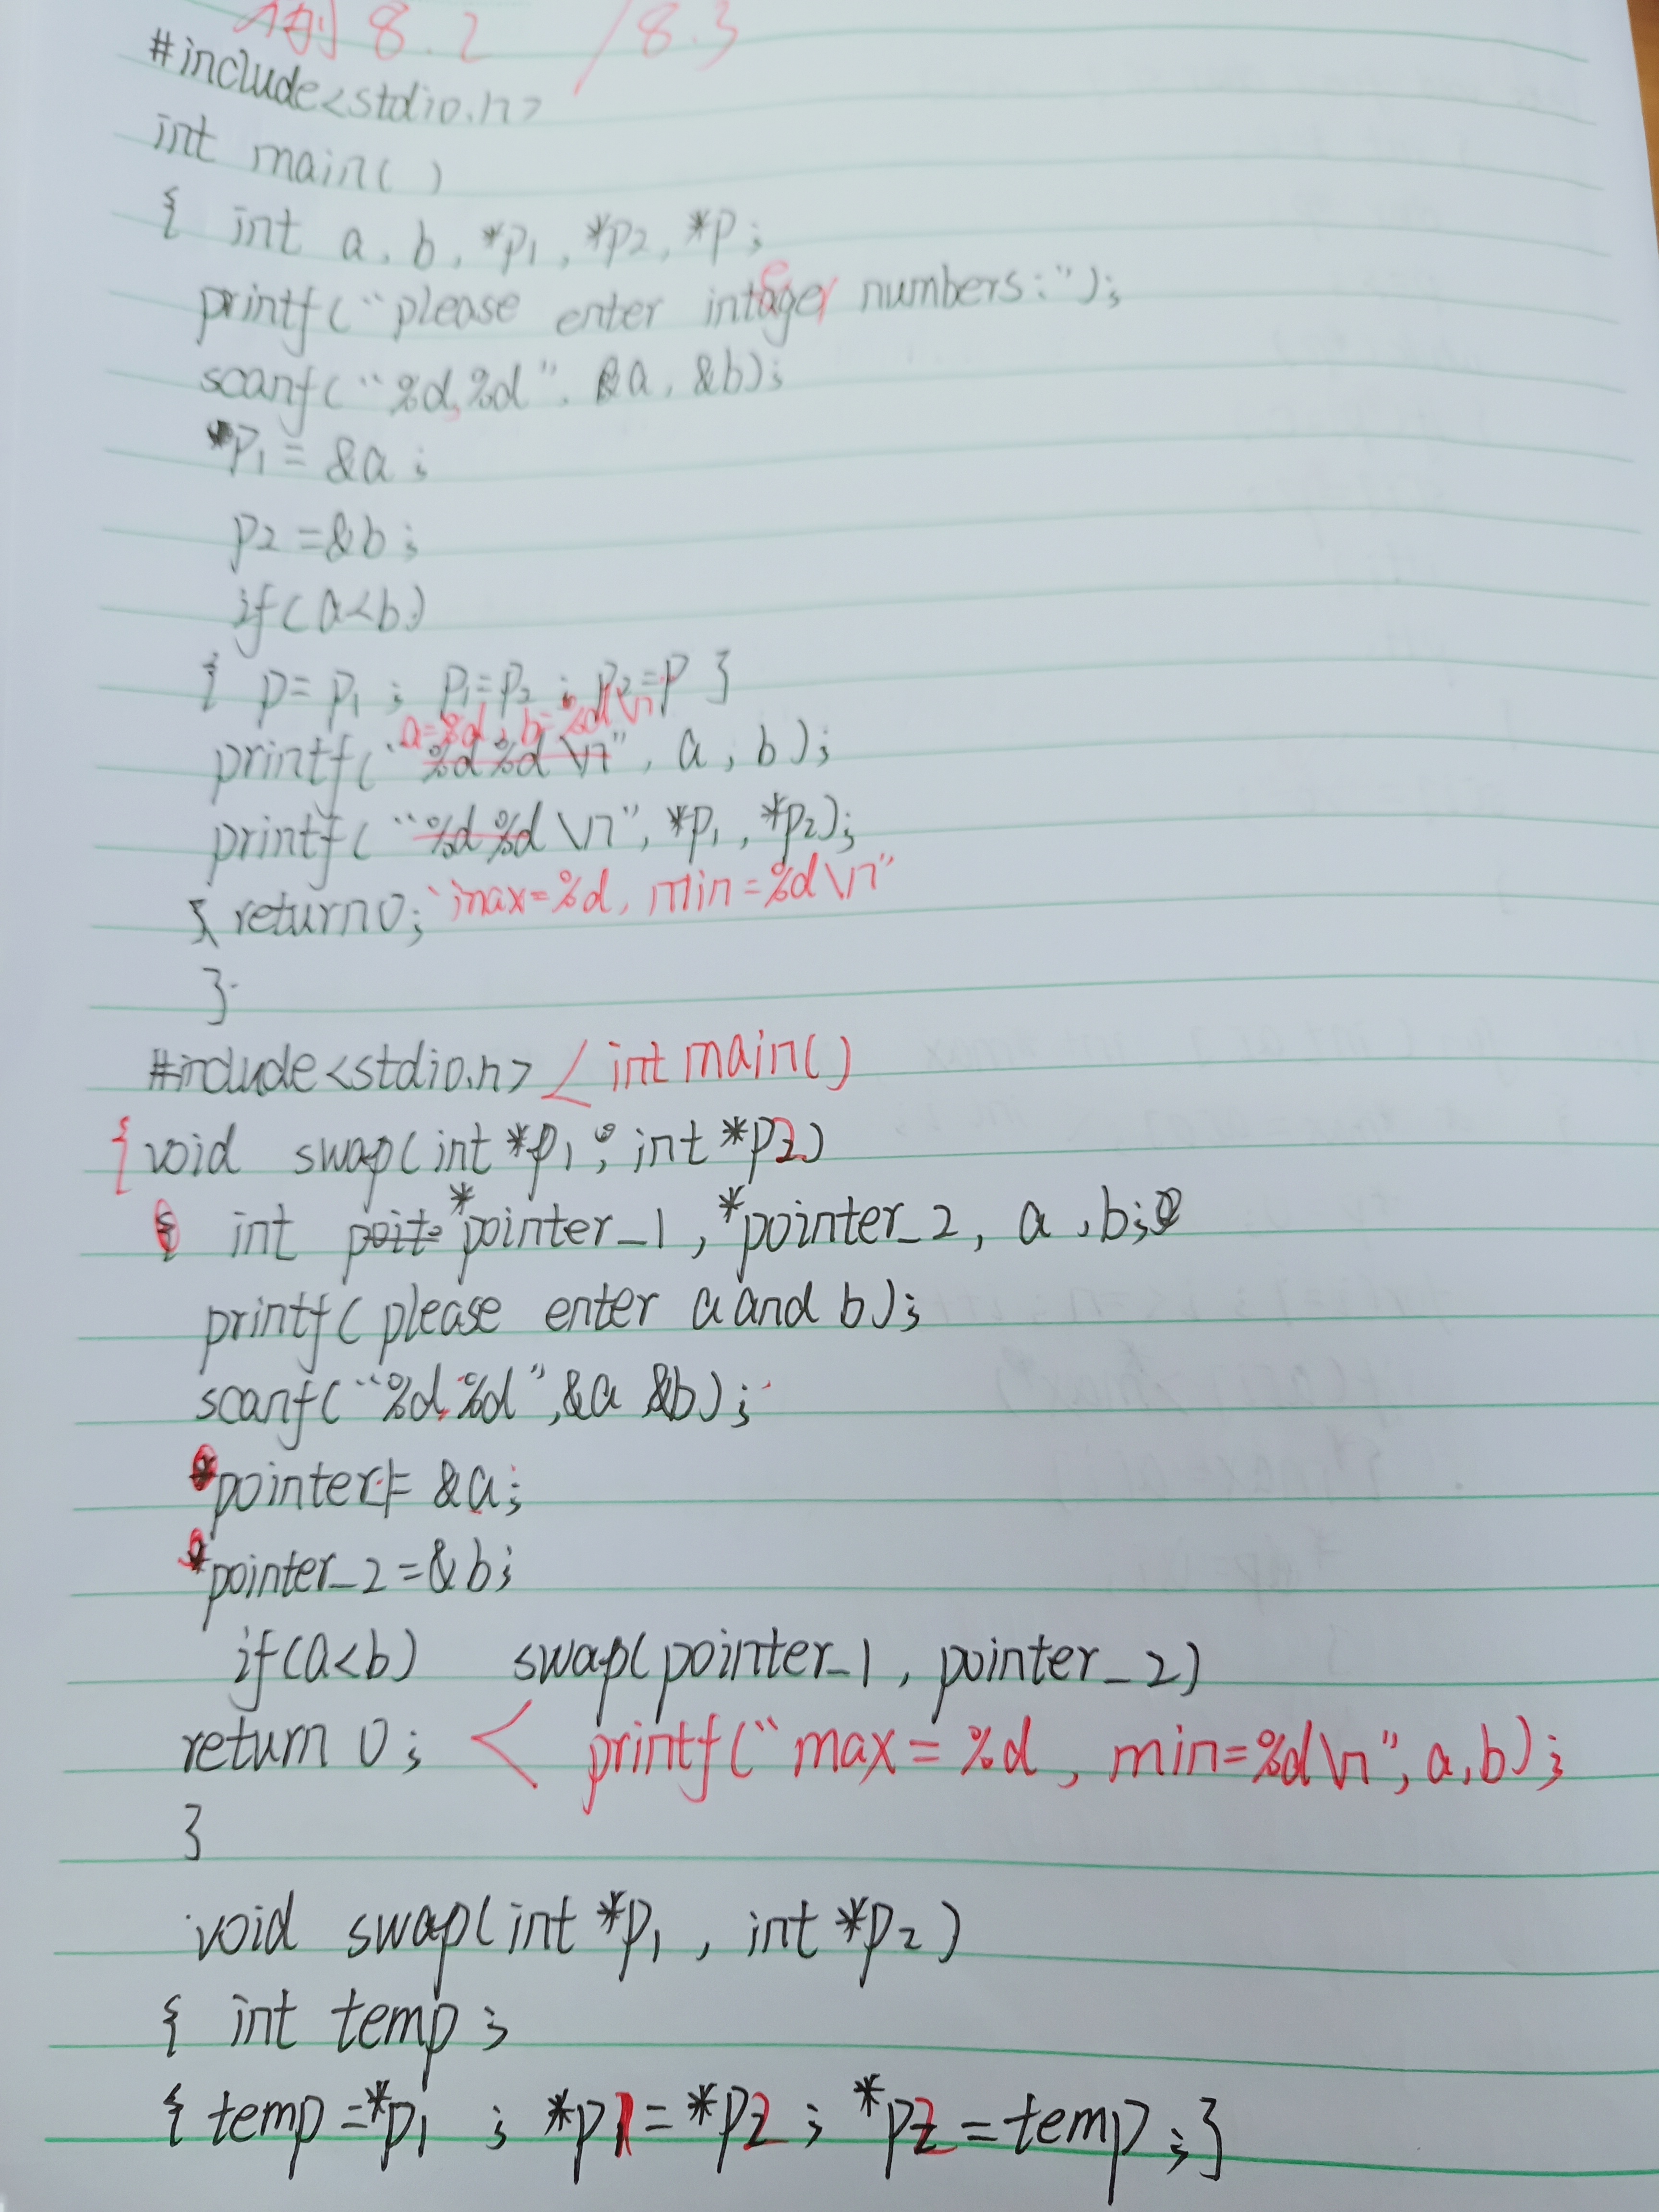 例 8.2 / 8.3
#include<stdio.h>
int main( )
{ int a, b, *p1, *p2, *p;
printf("please enter integer numbers:");
scanf("%d,%d", &a, &b);
*p1 = &a;
p2 = &b;
if(a<b)
{ p= p1 ; p1=p2 ; p2=p }
a=%d, b=%d\n
printf("%d%d\n", a, b);
printf("%d%d\n", *p1, *p2);
"max=%d, min=%d\n"
} return 0;
}
#include<stdio.h> < int main()
{ void swap(int *p1 , int *p2)
{ int poit= *pointer_1, *pointer_2, a, b;
printf(please enter a and b);
scanf("%d,%d",&a &b);
*pointer_1= &a;
*pointer_2=&b;
if(a<b) swap(pointer_1, pointer_2)
return 0; < printf("max=%d, min=%d\n", a,b);
}
void swap(int *p1, int *p2)
{ int temp;
{ temp=*p1 ; *p1=*p2; *p2=temp;}